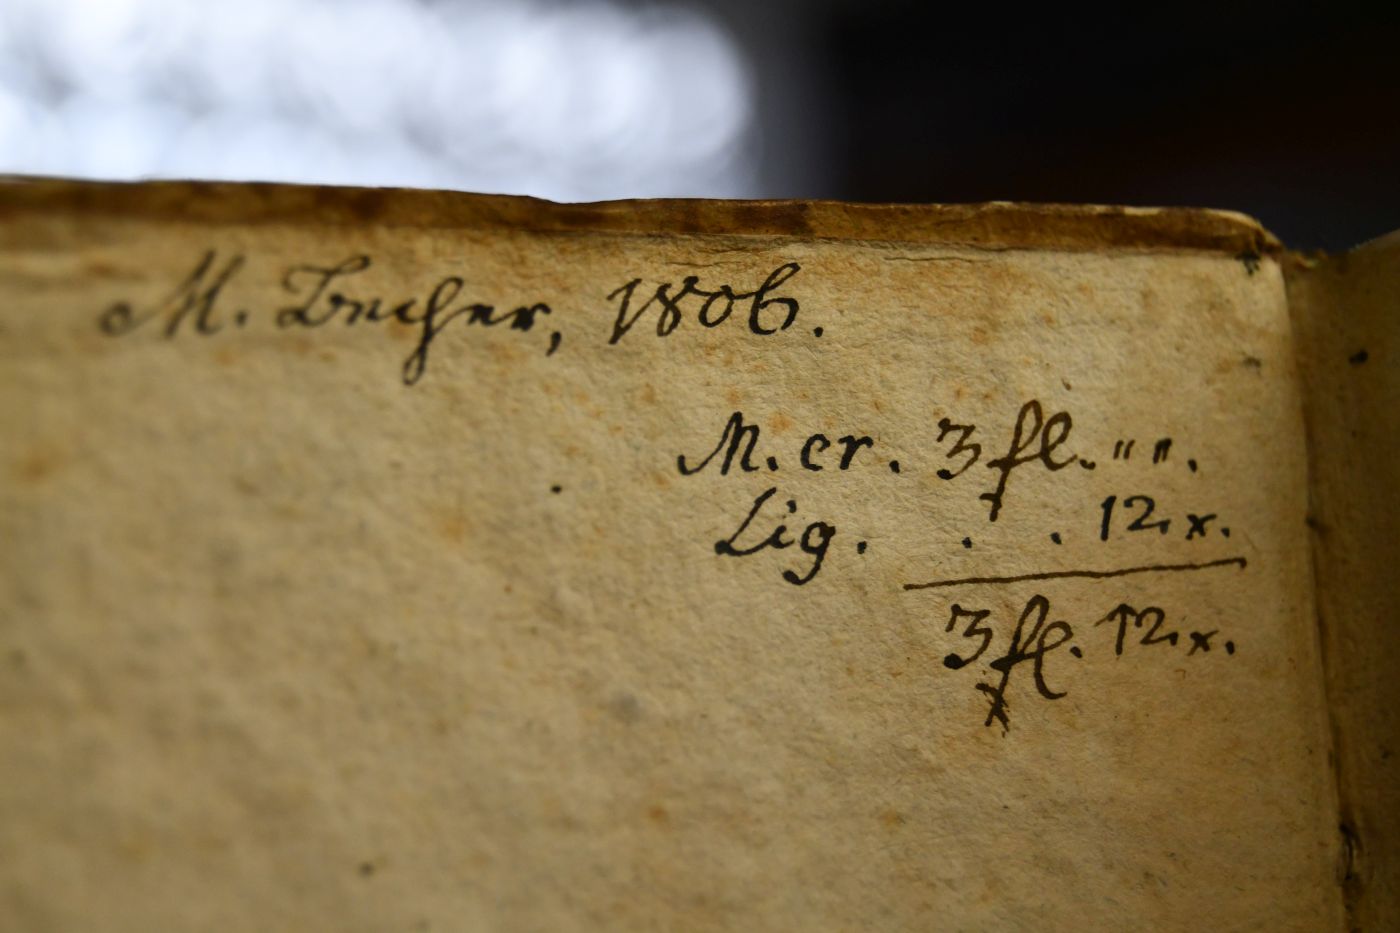 M. Becher, 1806.
M. cr. 3 fl. " ".
Lig. . . 12. x.
3 fl. 12. x.